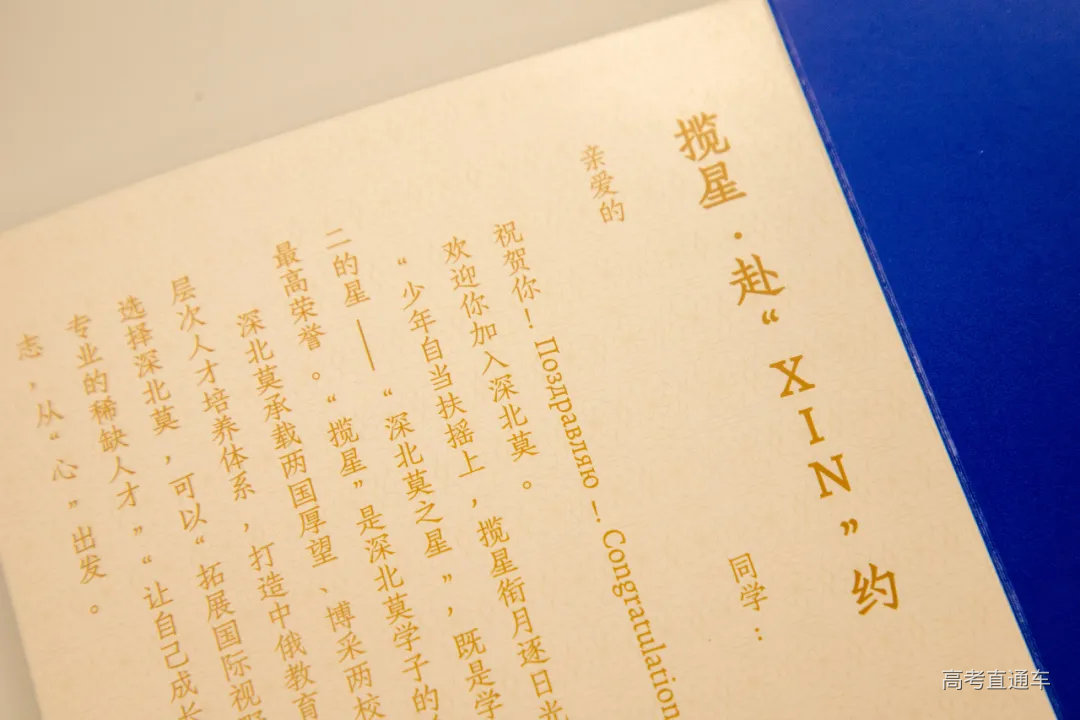 揽星·赴“XIN”约
亲爱的 同学：
祝贺你！Поздравляю！Congratulation
欢迎你加入深北莫。
“少年自当扶摇上，揽星衔月逐日光
二的星——“深北莫之星”，既是学
最高荣誉。“揽星”是深北莫学子的
深北莫承载两国厚望、博采两校
层次人才培养体系，打造中俄教育
选择深北莫，可以“拓展国际视野
专业的稀缺人才”“让自己成长
志，从“心”出发。
高考直通车